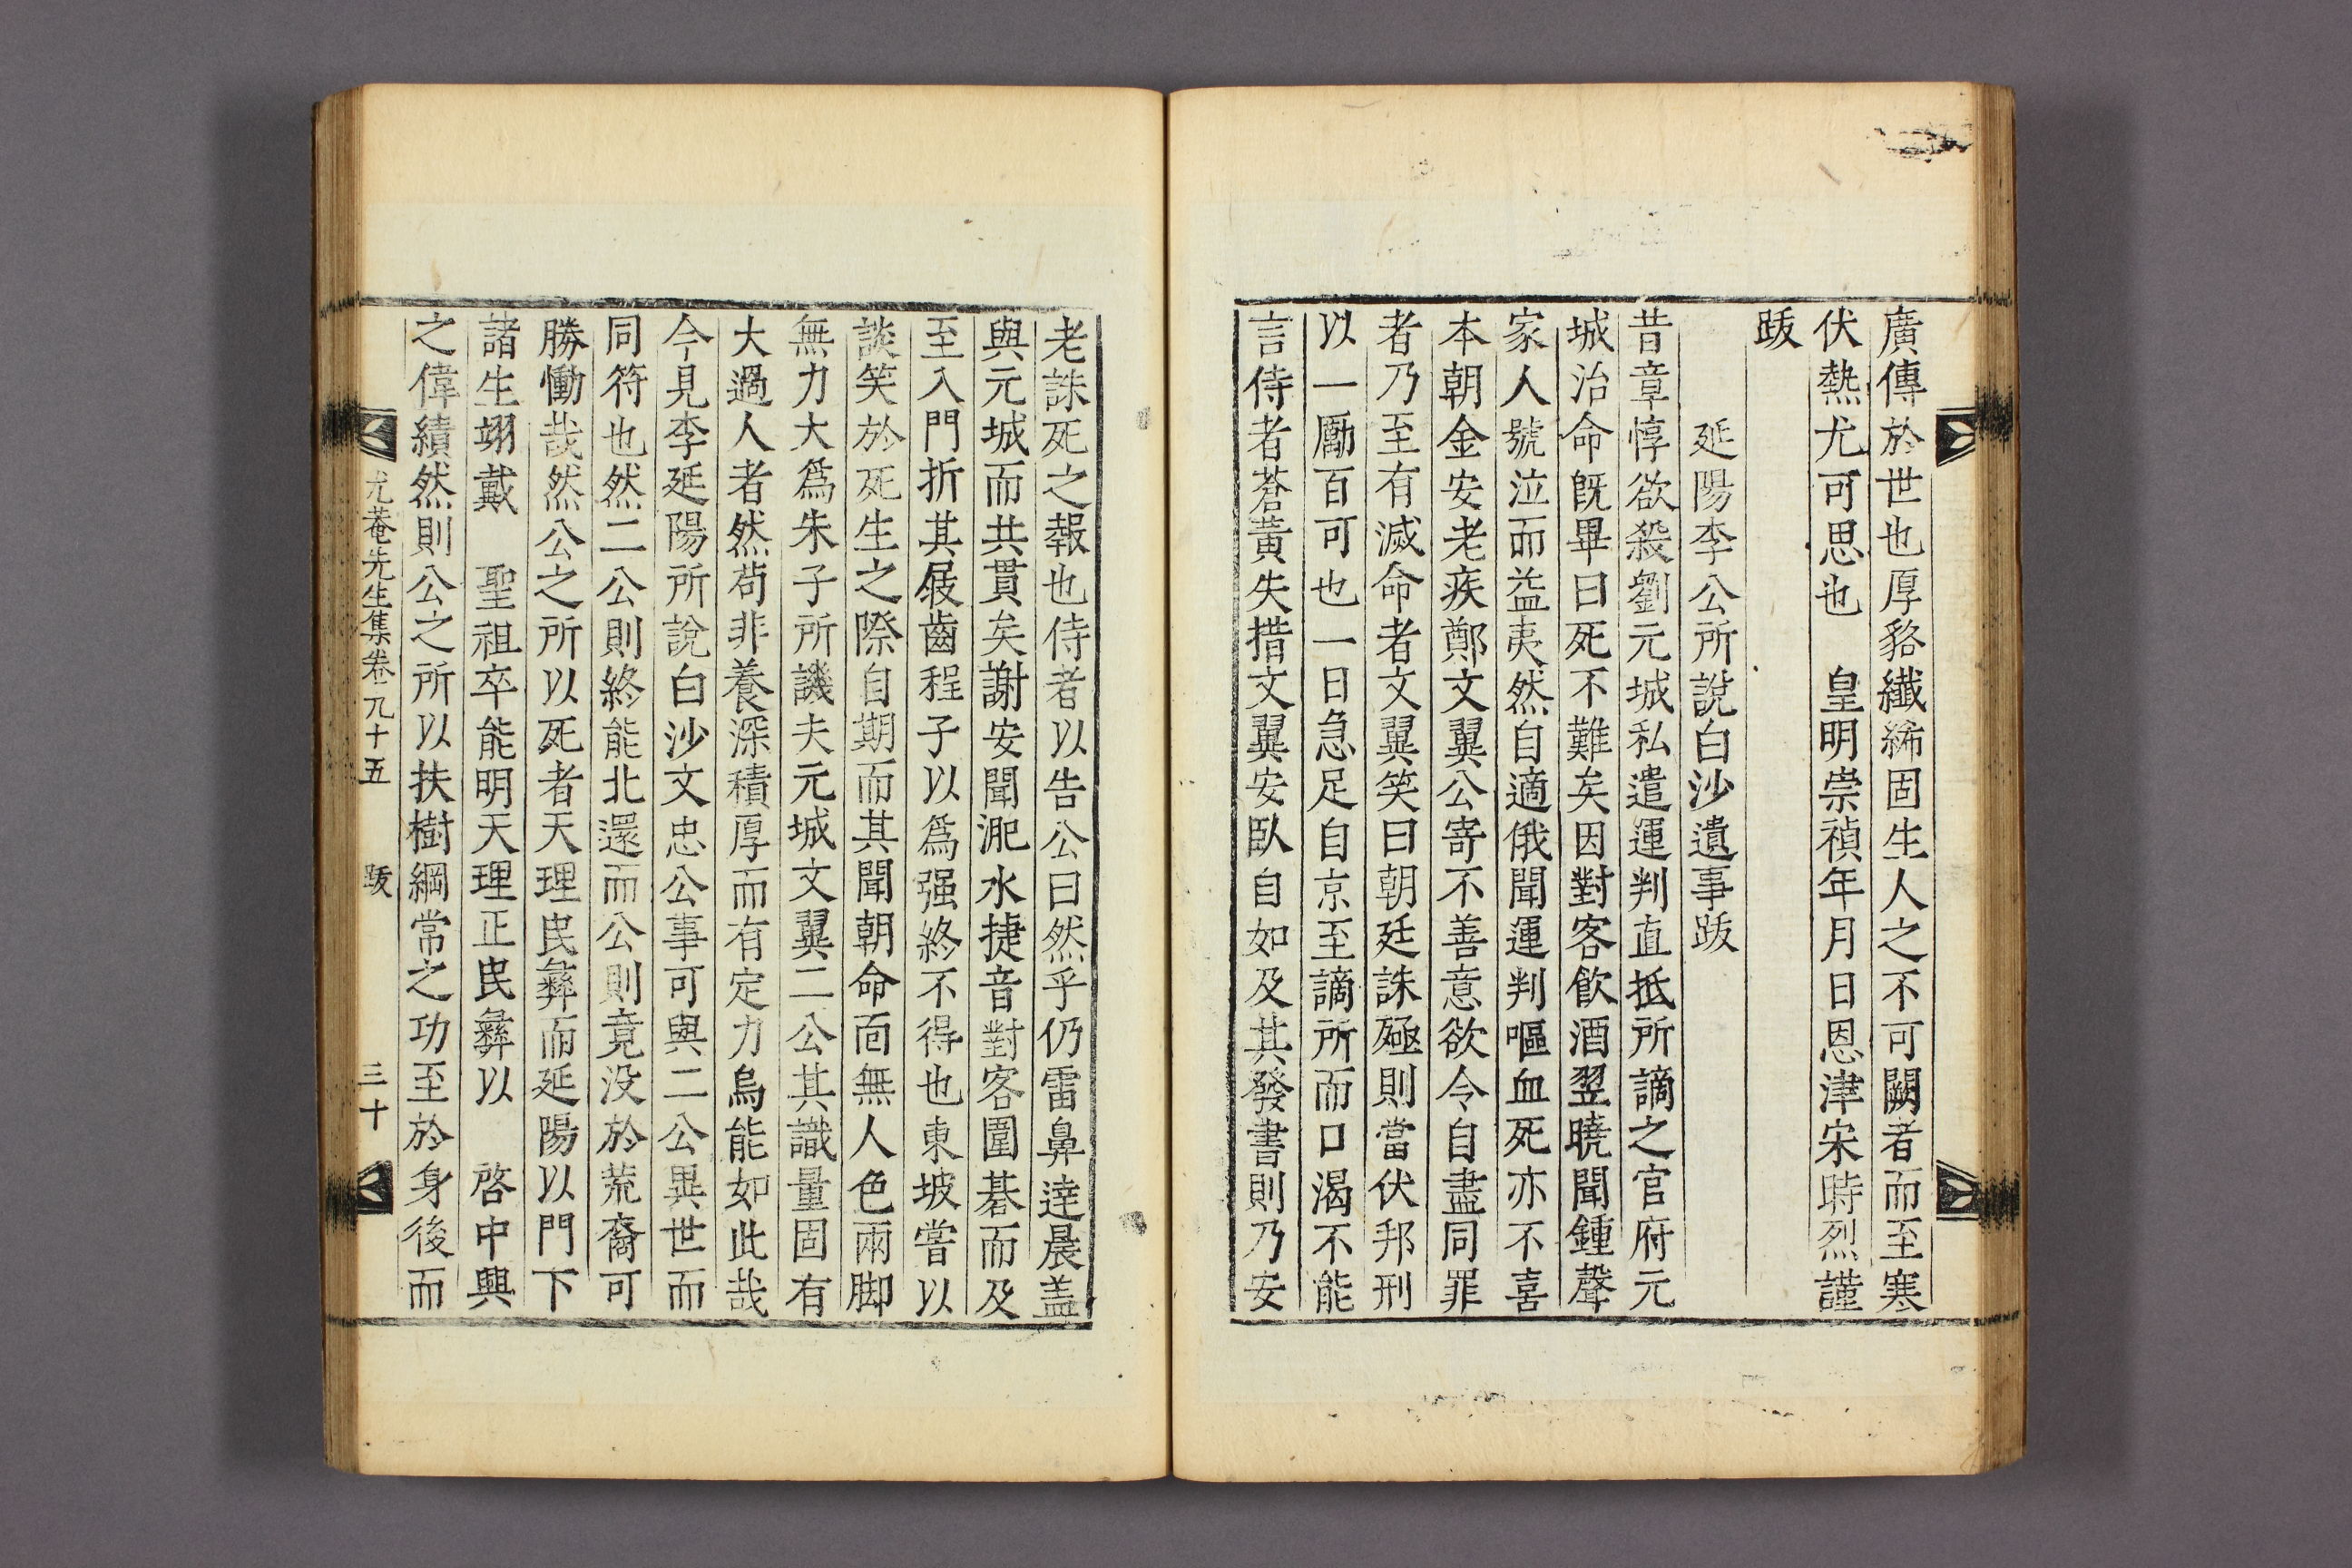 廣傳於世也厚貉纖絺固生人之不可闕者而至寒
伏熱尤可思也　皇明崇禎年月日恩津宋時烈謹
跋
延陽李公所說白沙遺事跋
昔章惇欲殺劉元城私遣運判直抵所謫之官府元
城治命旣畢曰死不難矣因對客飮酒翌曉聞鍾聲
家人號泣而益夷然自適俄聞運判嘔血死亦不喜
本朝金安老疾鄭文翼公寄不善意欲令自盡同罪
者乃至有滅命者文翼笑曰朝廷誅殛則當伏邦刑
以一勵百可也一日急足自京至謫所而口渴不能
言侍者蒼黃失措文翼安臥自如及其發書則乃安
老誅死之報也侍者以告公曰然乎仍雷鼻達晨盖
與元城而共貫矣謝安聞淝水捷音對客圍碁而及
至入門折其屐齒程子以爲强終不得也東坡嘗以
談笑於死生之際自期而其聞朝命面無人色兩脚
無力大爲朱子所譏夫元城文翼二公其識量固有
大過人者然苟非養深積厚而有定力烏能如此哉
今見李延陽所說白沙文忠公事可與二公異世而
同符也然二公則終能北還而公則竟没於荒裔可
勝慟哉然公之所以死者天理民彝而延陽以門下
諸生翊戴　聖祖卒能明天理正民彝以　啓中興
之偉績然則公之所以扶樹綱常之功至於身後而
尤菴先生集卷九十五　跋　三十